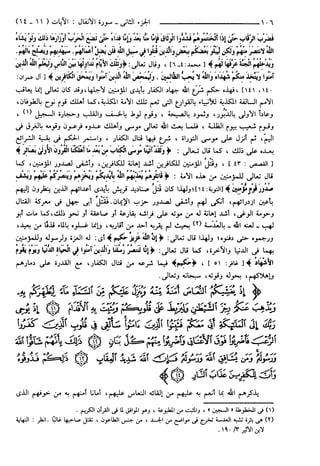 ١٠٦ الجزء الثاني - سورة الأنفال: الآيات (١١ - ١٤)
فَضَرْبَ الرِّقَابِ حَتَّى إِذَا أَثْخَنتُمُوهُمْ فَشُدُّوا الْوَثَاقَ فَإِمَّا مَنًّا بَعْدُ وَإِمَّا فِدَاءً حَتَّى تَضَعَ الْحَرْبُ أَوْزَارَهَا ذَلِكَ وَلَوْ يَشَاءُ
اللَّهُ لَانتَصَرَ مِنْهُمْ وَلَكِن لِّيَبْلُوَ بَعْضَكُم بِبَعْضٍ وَالَّذِينَ قُتِلُوا فِي سَبِيلِ اللَّهِ فَلَن يُضِلَّ أَعْمَالَهُمْ. سَيَهْدِيهِمْ وَيُصْلِحُ بَالَهُمْ.
وَيُدْخِلُهُمُ الْجَنَّةَ عَرَّفَهَا لَهُمْ﴾ [محمد: ٤-٦]، وقال تعالى: ﴿وَتِلْكَ الْأَيَّامُ نُدَاوِلُهَا بَيْنَ النَّاسِ وَلِيَعْلَمَ اللَّهُ الَّذِينَ
آمَنُوا وَيَتَّخِذَ مِنكُمْ شُهَدَاءَ وَاللَّهُ لَا يُحِبُّ الظَّالِمِينَ. وَلِيُمَحِّصَ اللَّهُ الَّذِينَ آمَنُوا وَيَمْحَقَ الْكَافِرِينَ﴾ [آل عمران:
١٤٠، ١٤١]، فهذه حكم شرع الله جهاد الكفار بأيدي المؤمنين لأجلها، وقد كان تعالى إنما يعاقب
الأمم السالفة المكذبة للأنبياء بالقوارع التي تعم تلك الأمة المكذبة، كما أهلك قوم نوح بالطوفان،
وعاداً الأولى بالدَّبور، وثمود بالصيحة، وقوم لوط بالخسف والقلب وحجارة السجيل (١)،
وقوم شعيب بيوم الظلة، فلما بعث الله تعالى موسى وأهلك عدوه فرعون وقومه بالغرق في
اليم، ثم أنزل على موسى التوراة، شرع فيها قتال الكفار، واستمر الحكم في بقية الشرائع
بعده على ذلك، كما قال تعالى: ﴿وَلَقَدْ آتَيْنَا مُوسَى الْكِتَابَ مِن بَعْدِ مَا أَهْلَكْنَا الْقُرُونَ الْأُولَى بَصَائِرَ﴾
[القصص: ٤٣]، وقَتْلُ المؤمنين للكافرين أشد إهانة للكافرين، وأشفى لصدور المؤمنين، كما
قال تعالى للمؤمنين من هذه الأمة: ﴿قَاتِلُوهُمْ يُعَذِّبْهُمُ اللَّهُ بِأَيْدِيكُمْ وَيُخْزِهِمْ وَيَنصُرْكُمْ عَلَيْهِمْ وَيَشْفِ
صُدُورَ قَوْمٍ مُّؤْمِنِينَ﴾ [التوبة: ١٤] ولهذا كان قتل صناديد قريش بأيدي أعدائهم الذين ينظرون إليهم
بأعين ازدرائهم، أنكى لهم وأشفى لصدور حزب الإيمان. فَقَتْلُ أبي جهل في معركة القتال
وحومة الوغى، أشد إهانة له من موته على فراشه بقارعة أو صاعقة أو نحو ذلك، كما مات أبو
لهب - لعنه الله - بالعدسة (٢) بحيث لم يقربه أحد من أقاربه، وإنما غسلوه بالماء قذفًا من بعيد،
ورجموه حتى دفنوه؛ ولهذا قال تعالى: ﴿إِنَّ اللَّهَ عَزِيزٌ حَكِيمٌ﴾ أي: له العزة ولرسوله وللمؤمنين
بهما في الدنيا والآخرة، كما قال تعالى: ﴿إِنَّا لَنَنصُرُ رُسُلَنَا وَالَّذِينَ آمَنُوا فِي الْحَيَاةِ الدُّنْيَا وَيَوْمَ يَقُومُ
الْأَشْهَادُ﴾ [غافر: ٥١]، ﴿حَكِيمٌ﴾ فيما شرعه من قتال الكفار، مع القدرة على دمارهم
وإهلاكهم، بحوله وقوته، سبحانه وتعالى.
إِذْ يُغَشِّيكُمُ النُّعَاسَ أَمَنَةً مِّنْهُ وَيُنَزِّلُ عَلَيْكُم مِّنَ السَّمَاءِ مَاءً لِّيُطَهِّرَكُم بِهِ
وَيُذْهِبَ عَنكُمْ رِجْزَ الشَّيْطَانِ وَلِيَرْبِطَ عَلَى قُلُوبِكُمْ وَيُثَبِّتَ بِهِ الْأَقْدَامَ ۝ إِذْ
يُوحِي رَبُّكَ إِلَى الْمَلَائِكَةِ أَنِّي مَعَكُمْ فَثَبِّتُوا الَّذِينَ آمَنُوا سَأُلْقِي فِي قُلُوبِ الَّذِينَ كَفَرُوا
الرُّعْبَ فَاضْرِبُوا فَوْقَ الْأَعْنَاقِ وَاضْرِبُوا مِنْهُمْ كُلَّ بَنَانٍ ۝ ذَلِكَ بِأَنَّهُمْ شَاقُّوا اللَّهَ
وَرَسُولَهُ وَمَن يُشَاقِقِ اللَّهَ وَرَسُولَهُ فَإِنَّ اللَّهَ شَدِيدُ الْعِقَابِ ۝ ذَلِكُمْ فَذُوقُوهُ
وَأَنَّ لِلْكَافِرِينَ عَذَابَ النَّارِ ۝
يذكرهم الله بما أنعم به عليهم من إلقائه النعاس عليهم، أمانا أمنهم به من خوفهم الذي
(١) في المخطوطة «السجين»، والمثبت من المطبوعة، وهو الموافق لما في القرآن الكريم.
(٢) هي بثرة تشبه العدسة تخرج في مواضع من الجسد، من جنس الطاعون، تقتل صاحبها غالبًا. انظر: النهاية
لابن الأثير ٣/ ١٩٠.